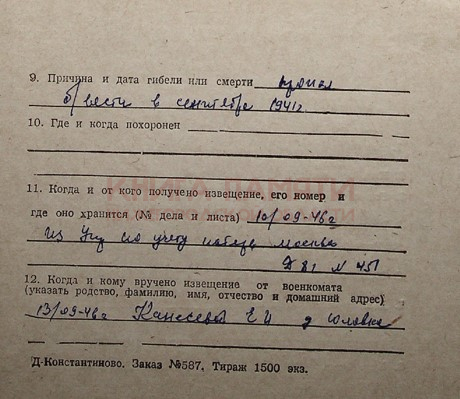 9. Причина и дата гибели или смерти пропал
б/вести в сентябре 1941г
10. Где и когда похоронен
КНИГА ПАМЯТИ
11. Когда и от кого получено извещение, его номер и
где оно хранится (№ дела и листа) 10/09-46г
из Упр по учету москва
Д 81 N 451
12. Когда и кому вручено извещение от военкомата
(указать родство, фамилию, имя, отчество и домашний адрес)
13/09-46г Е И д
Д-Константиново. Заказ №587, Тираж 1500 экз.